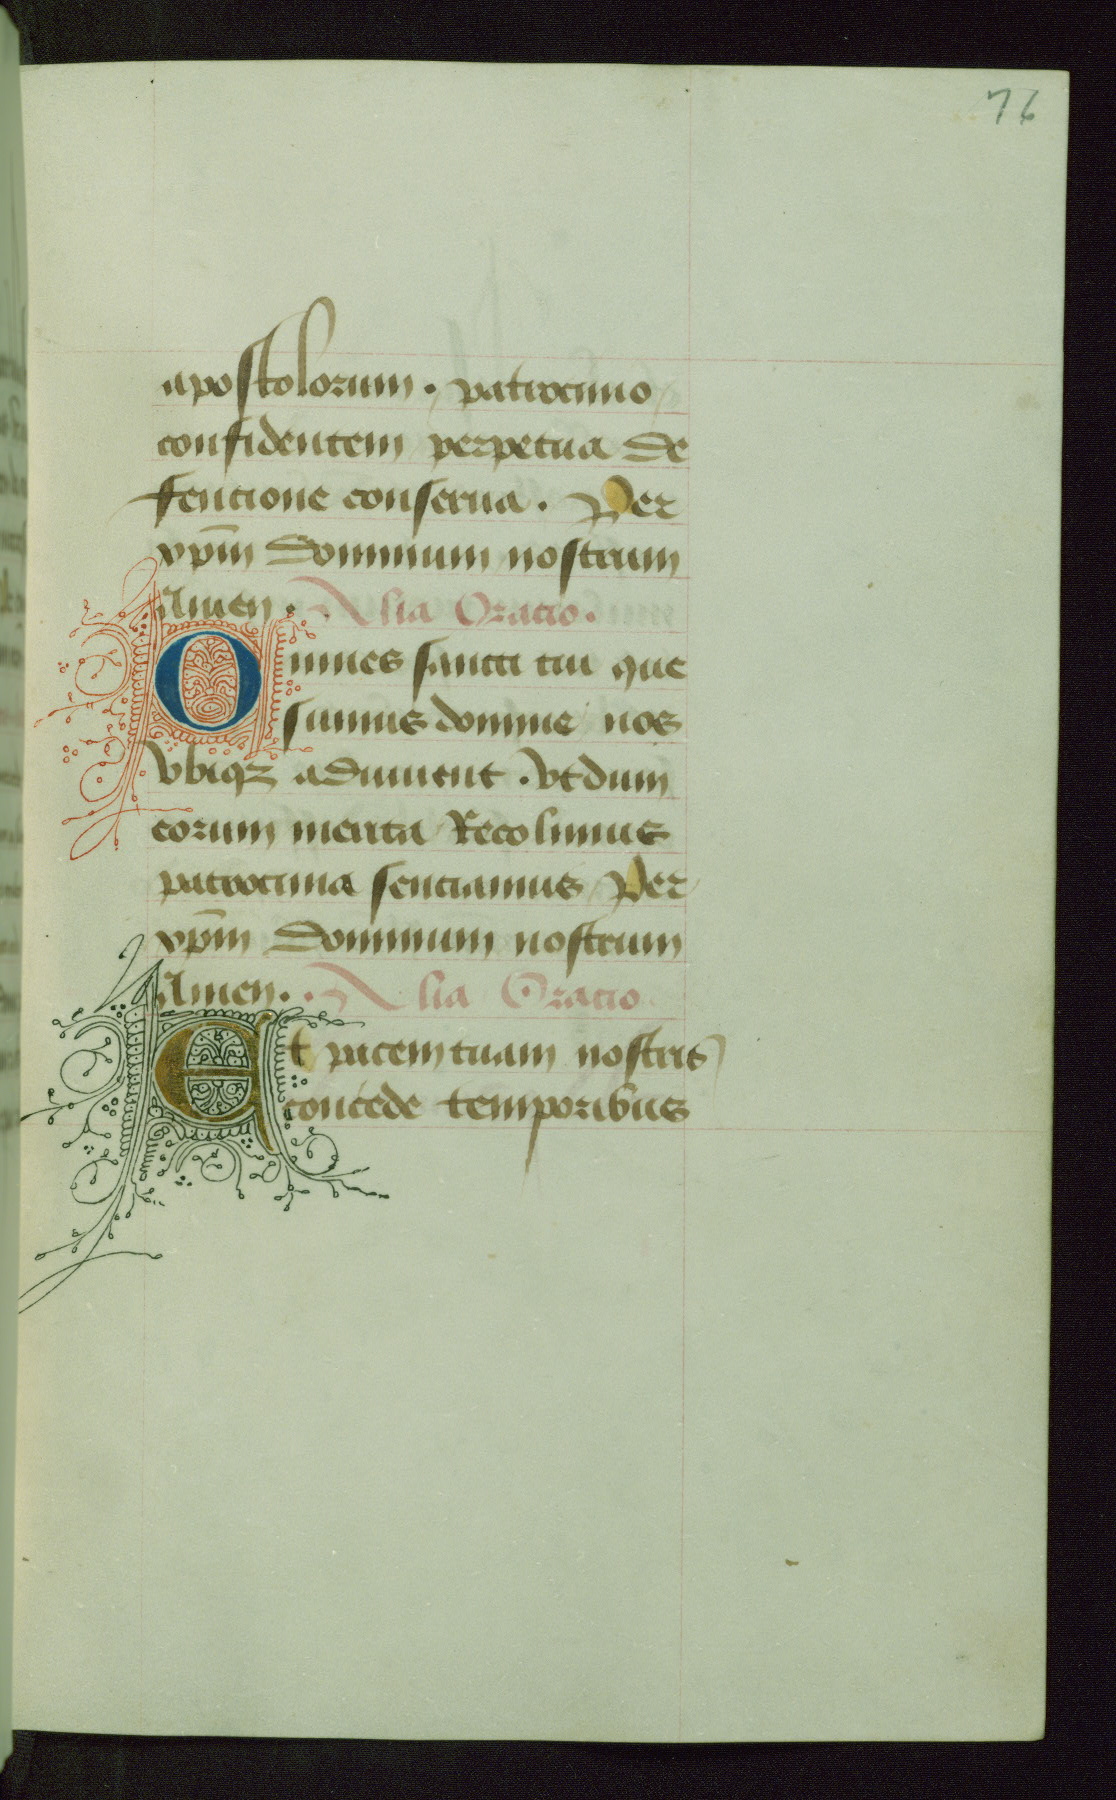 76
apostolorum. patrocinio
confidentem perpetua de
fencione conserua. Per
xp̄m dominum nostrum
Amen. Alia Oracio.
Omnes sancti tui que
sumus domine nos
vbiqꝫ adiuuent. vt dum
eorum merita Recolimus
patrocinia senciamus Per
xp̄m dominum nostrum
Amen. Alia Oracio
Et pacem tuam nostris
concede temporibus